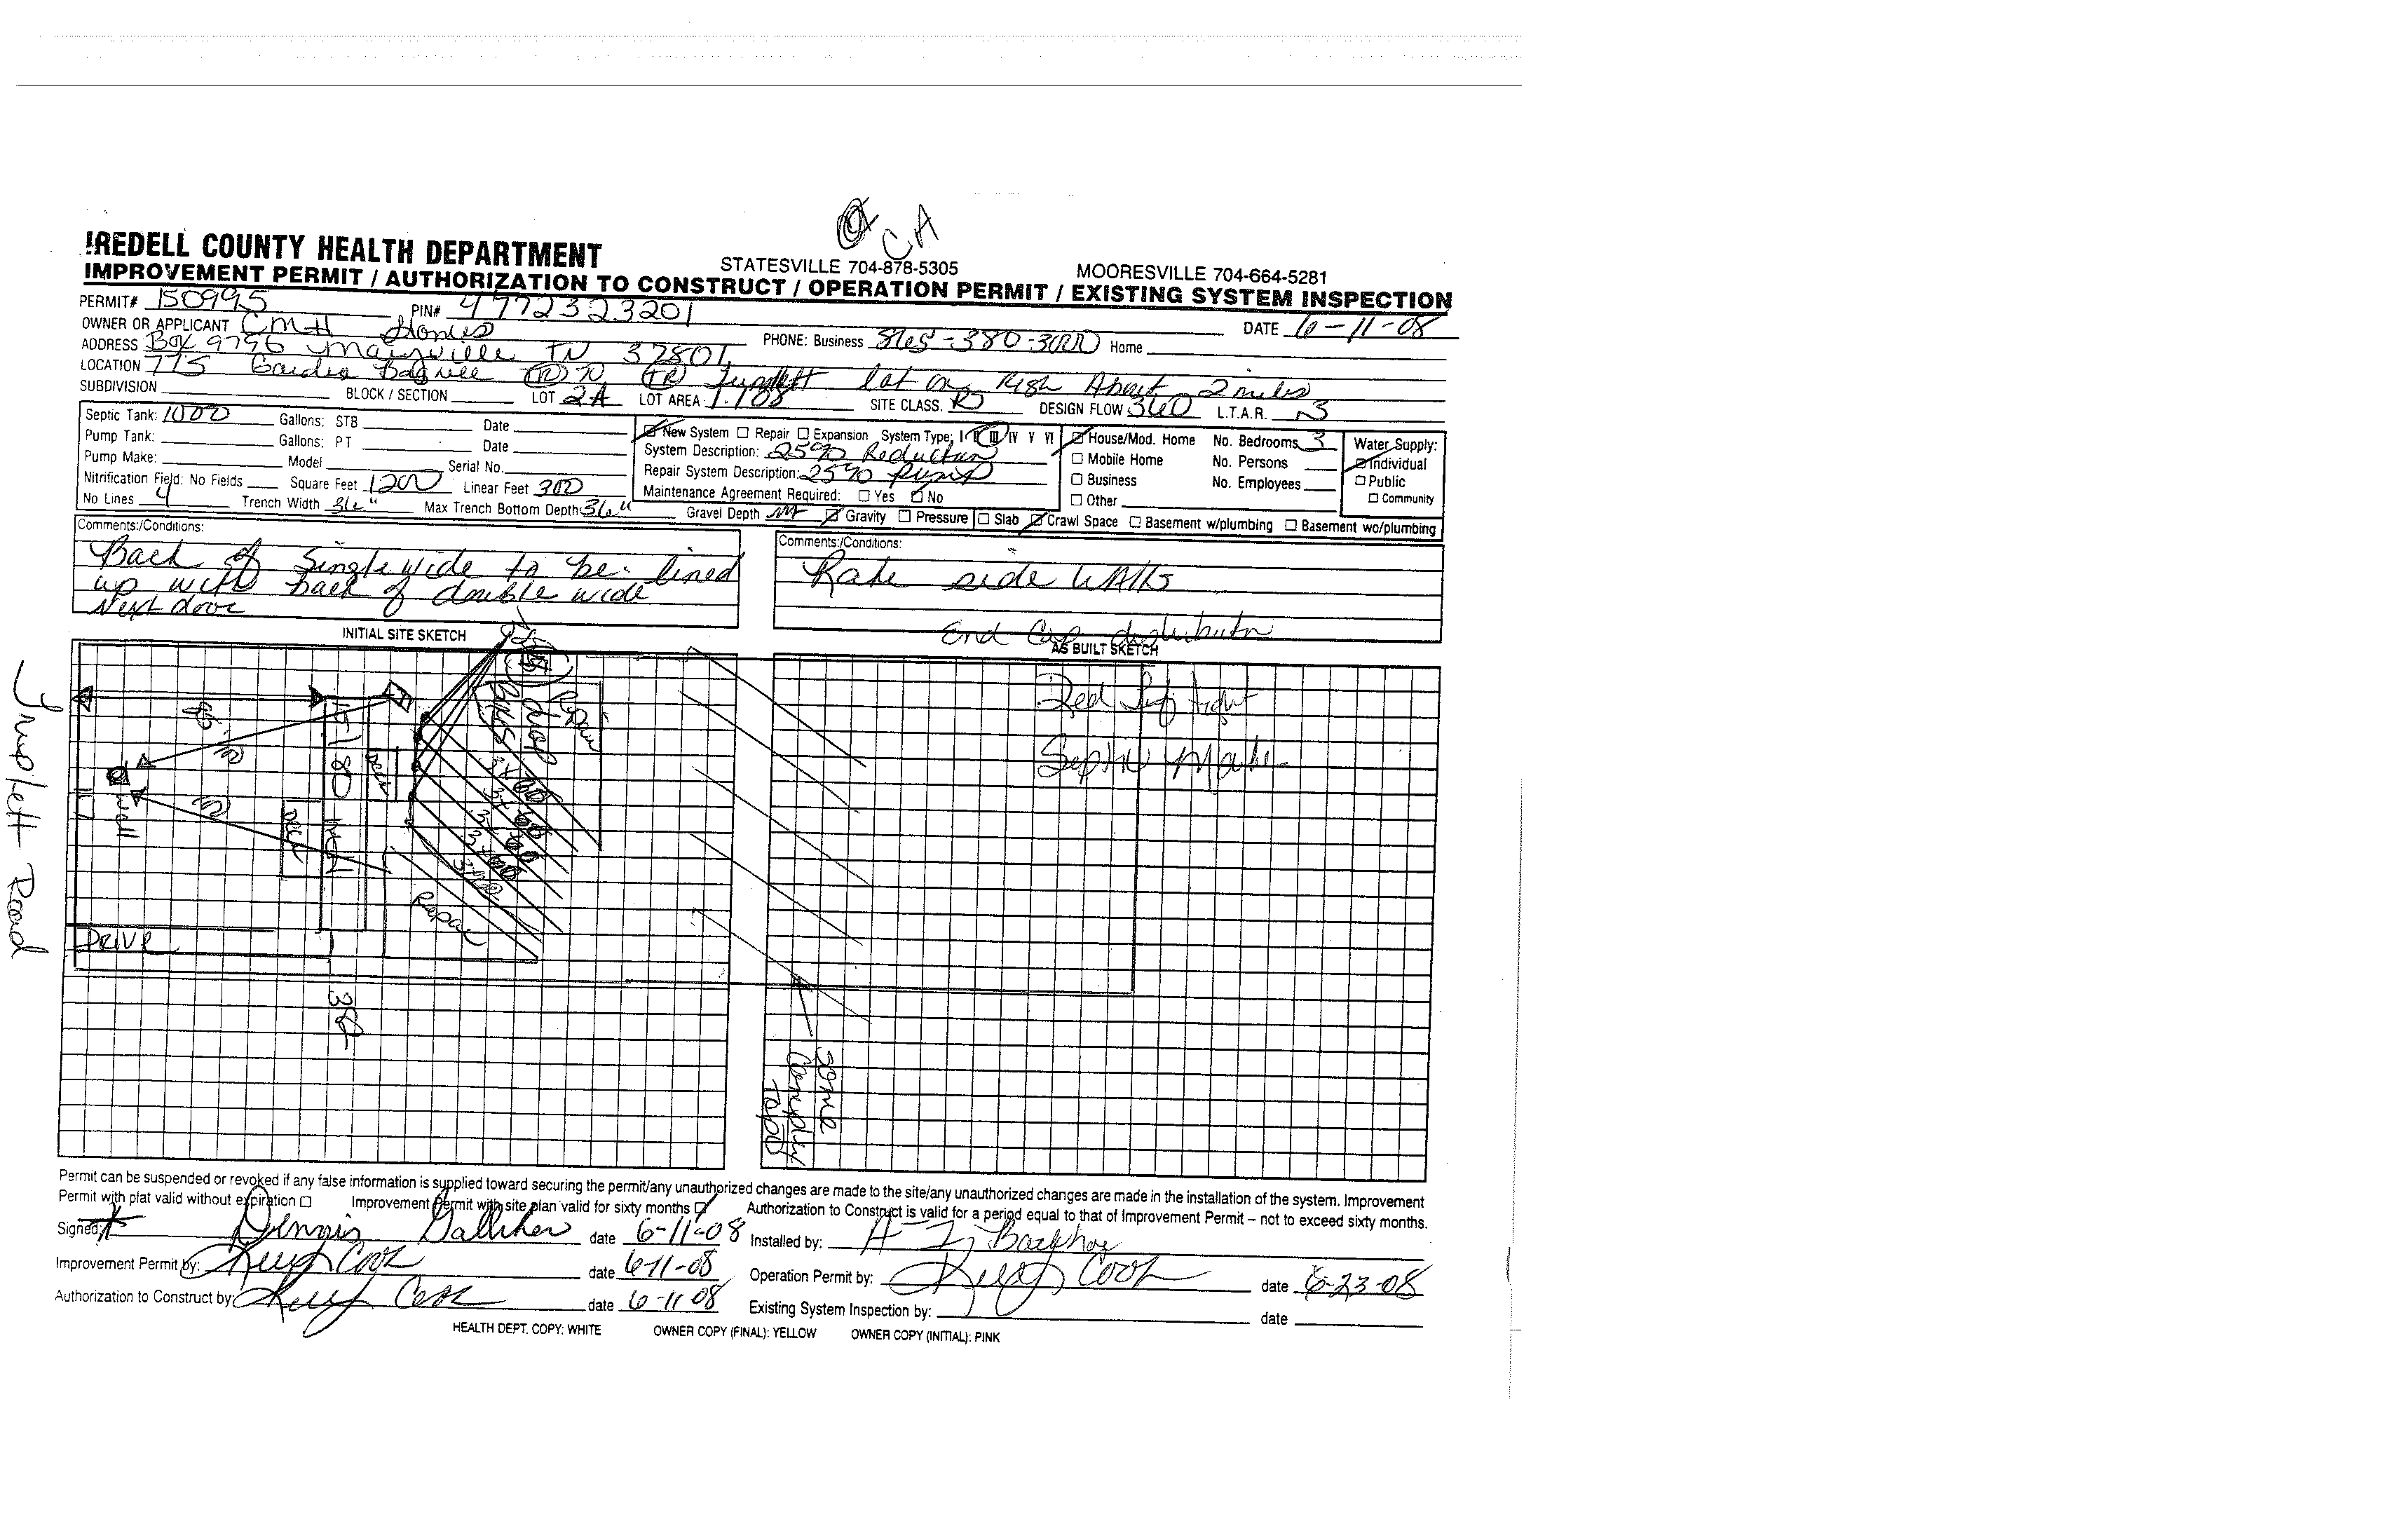 CA
IREDELL COUNTY HEALTH DEPARTMENT
STATESVILLE 704-878-5305 MOORESVILLE 704-664-5281
IMPROVEMENT PERMIT / AUTHORIZATION TO CONSTRUCT / OPERATION PERMIT / EXISTING SYSTEM INSPECTION
PERMIT# 150995 PIN# 4772323201 DATE 6-11-08
OWNER OR APPLICANT CMH Homes PHONE: Business 865-380-3000 Home
ADDRESS Box 9796 Maryville TN 37801
LOCATION 115 Bagnell 70 lot on Right About 2 miles
SUBDIVISION BLOCK / SECTION LOT 2A LOT AREA 1.108 SITE CLASS. DESIGN FLOW 360 L.T.A.R. .3
Septic Tank: 1000 Gallons: STB Date
Pump Tank: Gallons: PT Date
Pump Make: Model Serial No.
Nitrification Field: No Fields Square Feet 1200 Linear Feet 300
No Lines 4 Trench Width 36" Max Trench Bottom Depth: 36" Gravel Depth NA Gravity Pressure Slab Crawl Space Basement w/plumbing Basement wo/plumbing
New System Repair Expansion System Type: I II III IV V VI
System Description: 25% Reduction
Repair System Description: 25% Pump
Maintenance Agreement Required: Yes No
House/Mod. Home No. Bedrooms 3
Mobile Home No. Persons
Business No. Employees
Other
Water Supply:
Individual
Public
Community
Comments:/Conditions:
Back of Singlewide to be lined
up with back of double wide
Next door
Comments:/Conditions:
Rake side walls
End Cap distributn
INITIAL SITE SKETCH
AS BUILT SKETCH
Repair
Deck
Deck
15 180
well
Repair
Drive
Septic
Permit can be suspended or revoked if any false information is supplied toward securing the permit/any unauthorized changes are made to the site/any unauthorized changes are made in the installation of the system. Improvement
Permit with plat valid without expiration Improvement Permit with site plan valid for sixty months Authorization to Construct is valid for a period equal to that of Improvement Permit – not to exceed sixty months.
Signed: Dennis Galliher date 6-11-08 Installed by: A-1 Backhoe
Improvement Permit by: Kelly Cook date 6-11-08 Operation Permit by: Kelly Cook date 6-23-08
Authorization to Construct by: Kelly Cook date 6-11 08 Existing System Inspection by: date
HEALTH DEPT. COPY: WHITE OWNER COPY (FINAL): YELLOW OWNER COPY (INITIAL): PINK